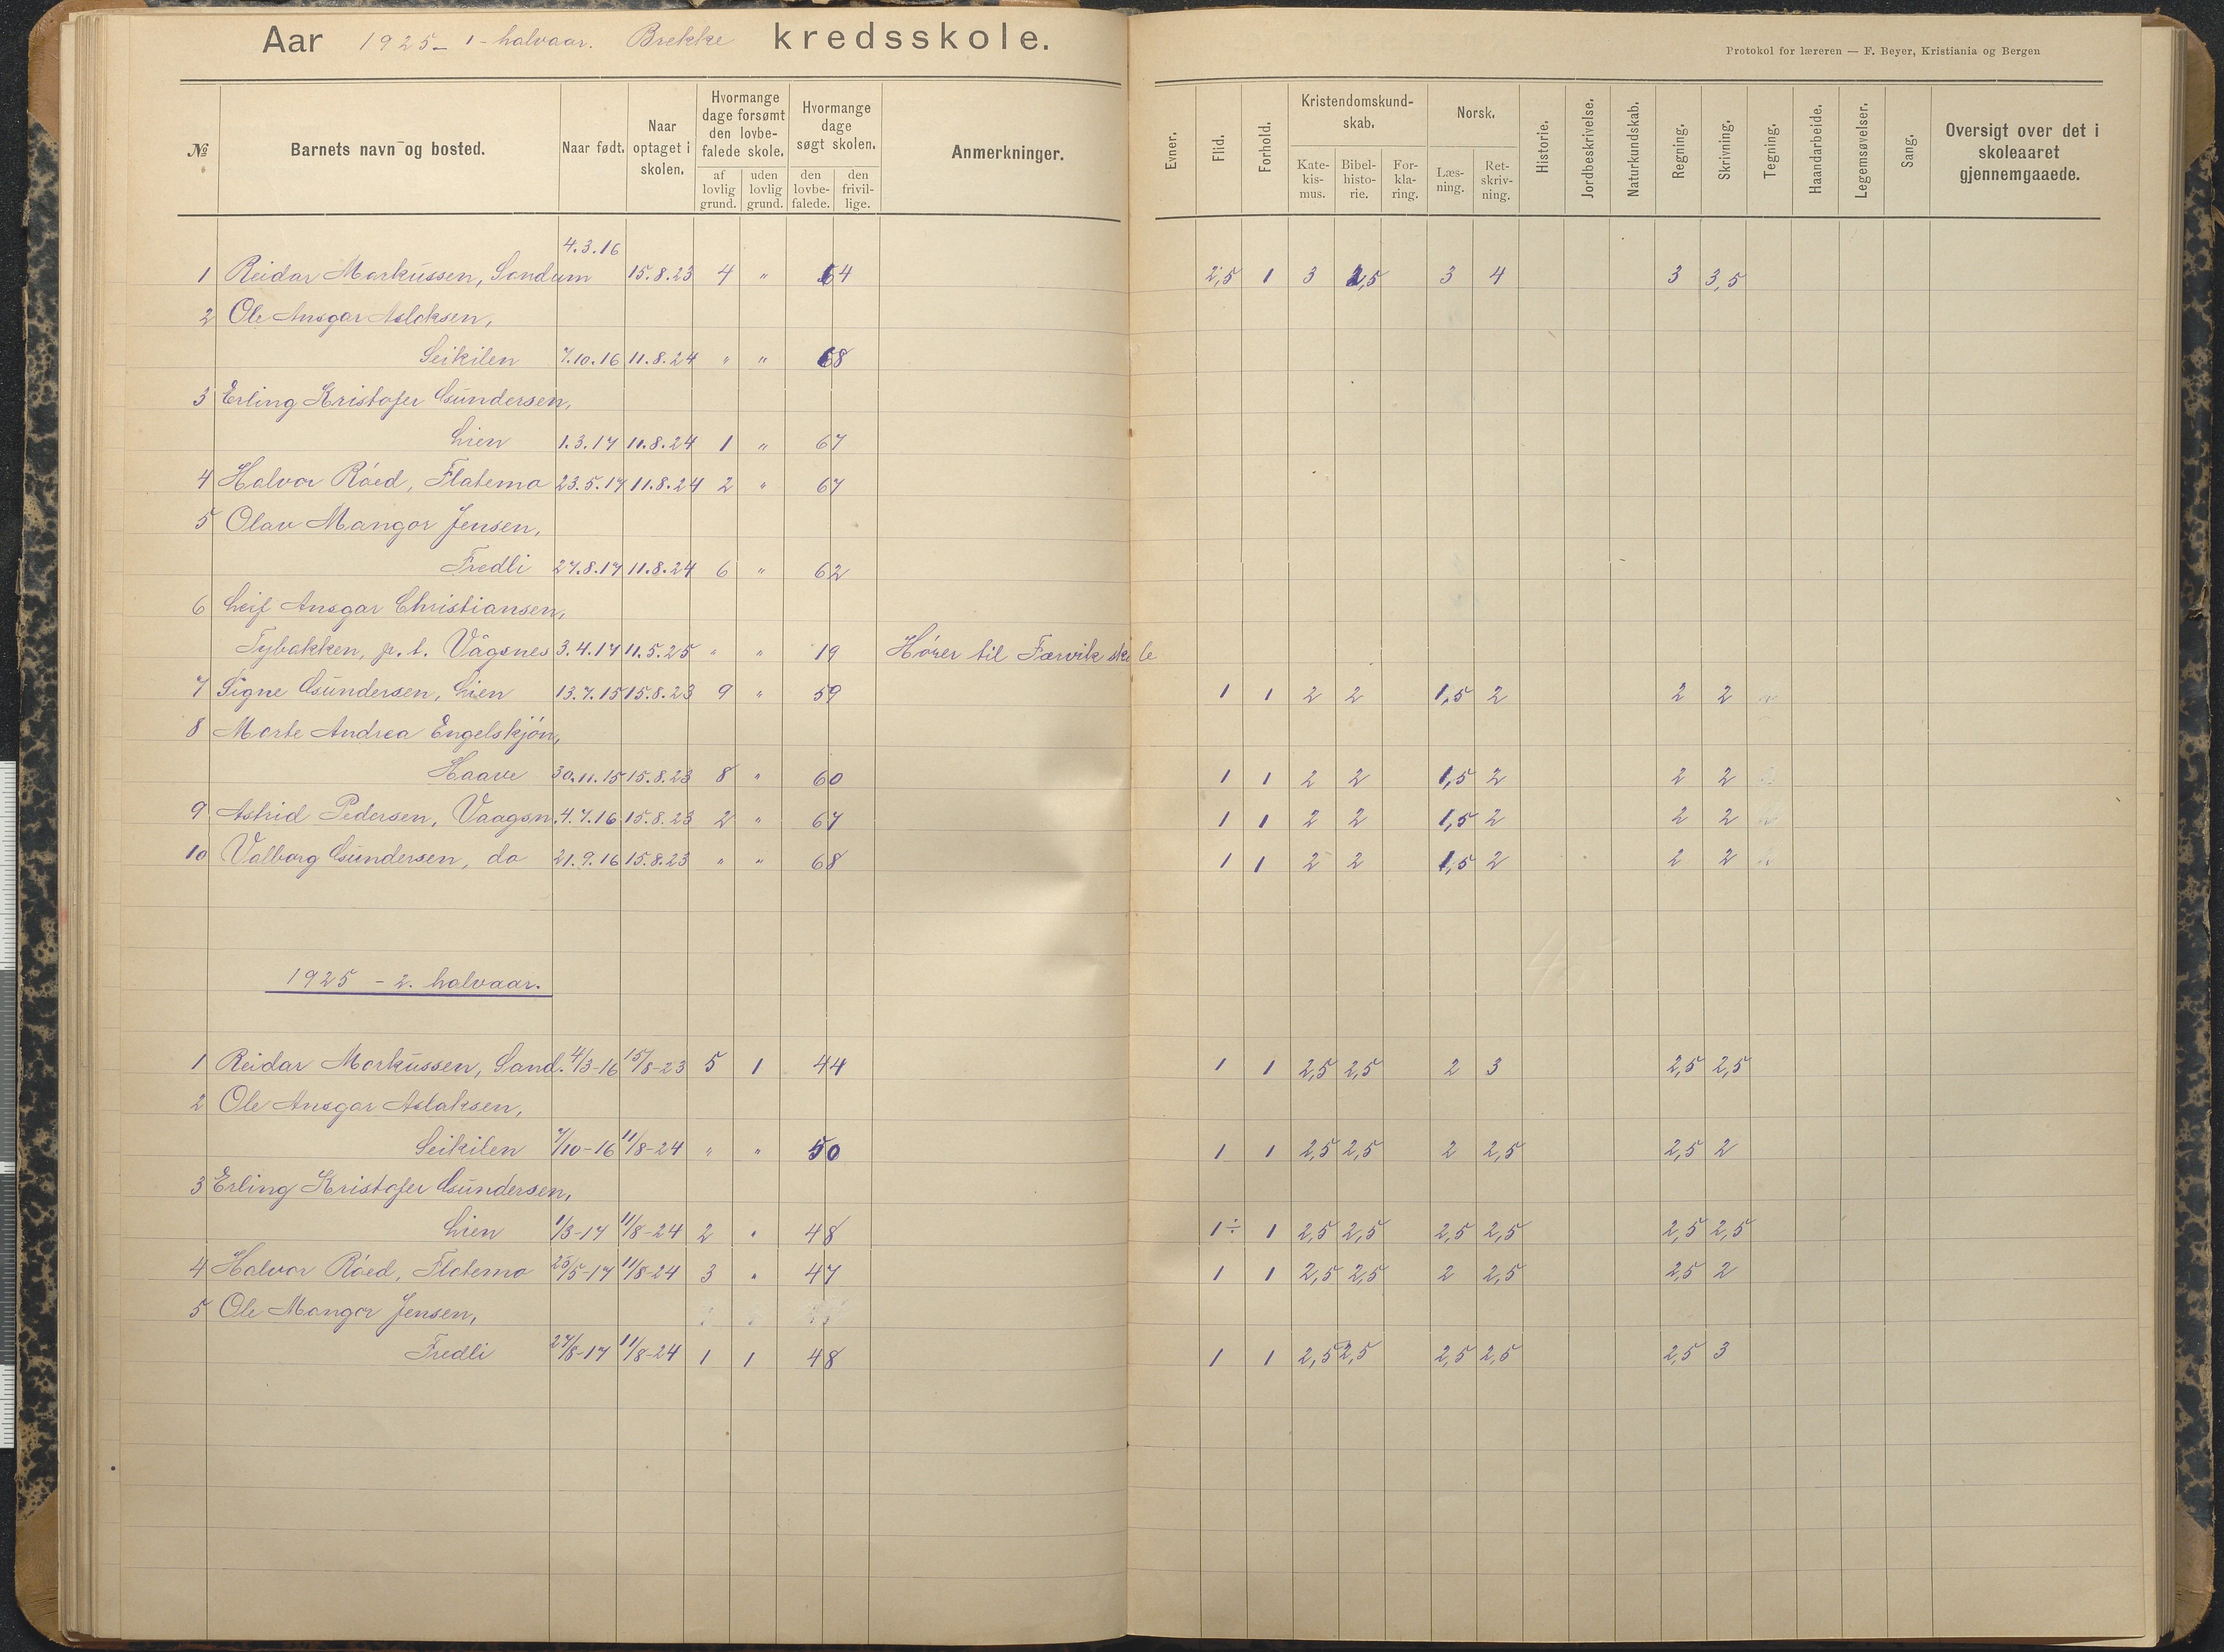 Aar 1925 - 1 - halvaar. Brekke kredsskole.
Protokol for læreren — F. Beyer, Kristiania og Bergen
№ Barnets navn og bosted. Naar født. Naar optaget i skolen. Hvormange dage forsømt den lovbefalede skole. af lovlig grund. uden lovlig grund. Hvormange dage søgt skolen. den lovbefalede. den frivillige. Anmerkninger. Evner. Flid. Forhold. Kristendomskundskab. Katekismus. Bibelhistorie. Forklaring. Norsk. Læsning. Retskrivning. Historie. Jordbeskrivelse. Naturkundskab. Regning. Skrivning. Tegning. Haandarbeide. Legemsøvelser. Sang. Oversigt over det i skoleaaret gjennemgaaede.
4.3.16
1 Reidar Markussen, Sandum 15.8.23 4 " 64 2,5 1 3 2,5 3 4 3 3,5
2 Ole Ansgar Aslaksen,
Seikilen 7.10.16 11.8.24 " " 68
3 Erling Kristofer Gundersen,
Lien 1.3.17 11.8.24 1 " 67
4 Halvor Röed, Flatemo 23.5.17 11.8.24 2 " 67
5 Olav Mangor Jensen,
Fredli 27.8.17 11.8.24 6 " 62
6 Leif Ansgar Christiansen,
Tybakken, p. t. Vågsnes 3.4.17 11.5.25 " " 19 Hörer til Færvik skole
7 Signe Gundersen, Lien 13.7.15 15.8.23 9 " 59 1 1 2 2 1,5 2 2 2
8 Marte Andrea Engelskjön,
Haave 30.11.15 15.8.23 8 " 60 1 1 2 2 1,5 2 2 2
9 Astrid Pedersen, Vaagsn. 4.7.16 15.8.23 2 " 67 1 1 2 2 1,5 2 2 2
10 Valborg Gundersen, do 21.9.16 15.8.23 " " 68 1 1 2 2 1,5 2 2 2
1925 - 2. halvaar.
1 Reidar Markussen, Sand. 4/3-16 15/8-23 5 1 44 1 1 2,5 2,5 2 3 2,5 2,5
2 Ole Ansgar Aslaksen,
Seikilen 7/10-16 11/8-24 " " 50 1 1 2,5 2,5 2 2,5 2,5 2
3 Erling Kristofer Gundersen,
Lien 1/3-17 11/8-24 2 " 48 1÷ 1 2,5 2,5 2,5 2,5 2,5 2,5
4 Halvor Röed, Flatemo 23/5-17 11/8-24 3 " 47 1 1 2,5 2,5 2 2,5 2,5 2
5 Ole Mangor Jensen,
Fredli 27/8-17 11/8-24 1 1 48 1 1 2,5 2,5 2,5 2,5 2,5 3